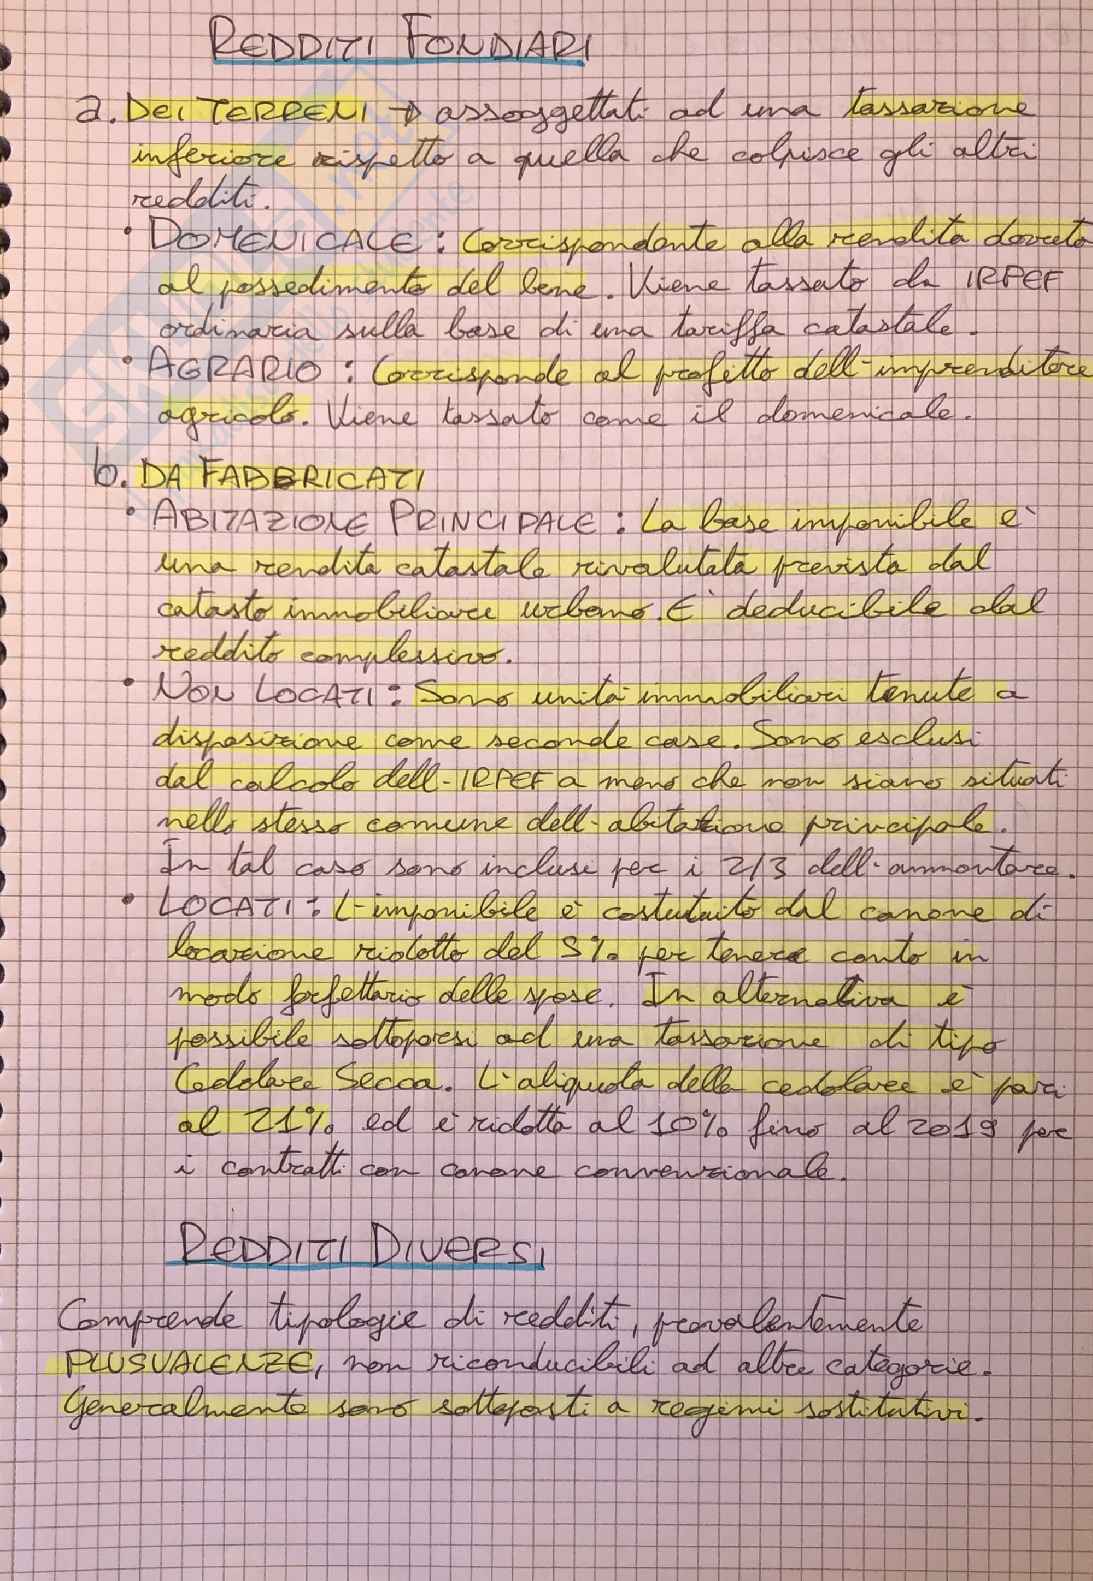 REDDITI FONDIARI
a. DEI TERRENI → assoggettati ad una tassazione
inferiore rispetto a quella che colpisce gli altri
redditi.
• DOMENICALE: Corrispondente alla rendita dovuta
al possedimento del bene. Viene tassato da IRPEF
ordinaria sulla base di una tariffa catastale.
• AGRARIO: Corrisponde al profitto dell'imprenditore
agricolo. Viene tassato come il domenicale.
b. DA FABBRICATI
• ABITAZIONE PRINCIPALE: La base imponibile è
una rendita catastale rivalutata prevista dal
catasto immobiliare urbano. E' deducibile dal
reddito complessivo.
• NON LOCATI: Sono unità immobiliari tenute a
disposizione come seconde case. Sono esclusi
dal calcolo dell'IRPEF a meno che non siano situati
nello stesso comune dell'abitazione principale.
In tal caso sono inclusi per i 2/3 dell'ammontare.
• LOCATI: L'imponibile è costutuito dal canone di
locazione ridotto del 5% per tenere conto in
modo forfettario delle spese. In alternativa è
possibile sottoporsi ad una tassazione di tipo
Cedolare Secca. L'aliquota della cedolare è pari
al 21% ed è ridotta al 10% fino al 2019 per
i contratti con canone convenzionale.
REDDITI DIVERSI
Comprende tipologie di redditi, prevalentemente
PLUSVALENZE, non riconducibili ad altre categorie.
Generalmente sono sottoposti a regimi sostitutivi.